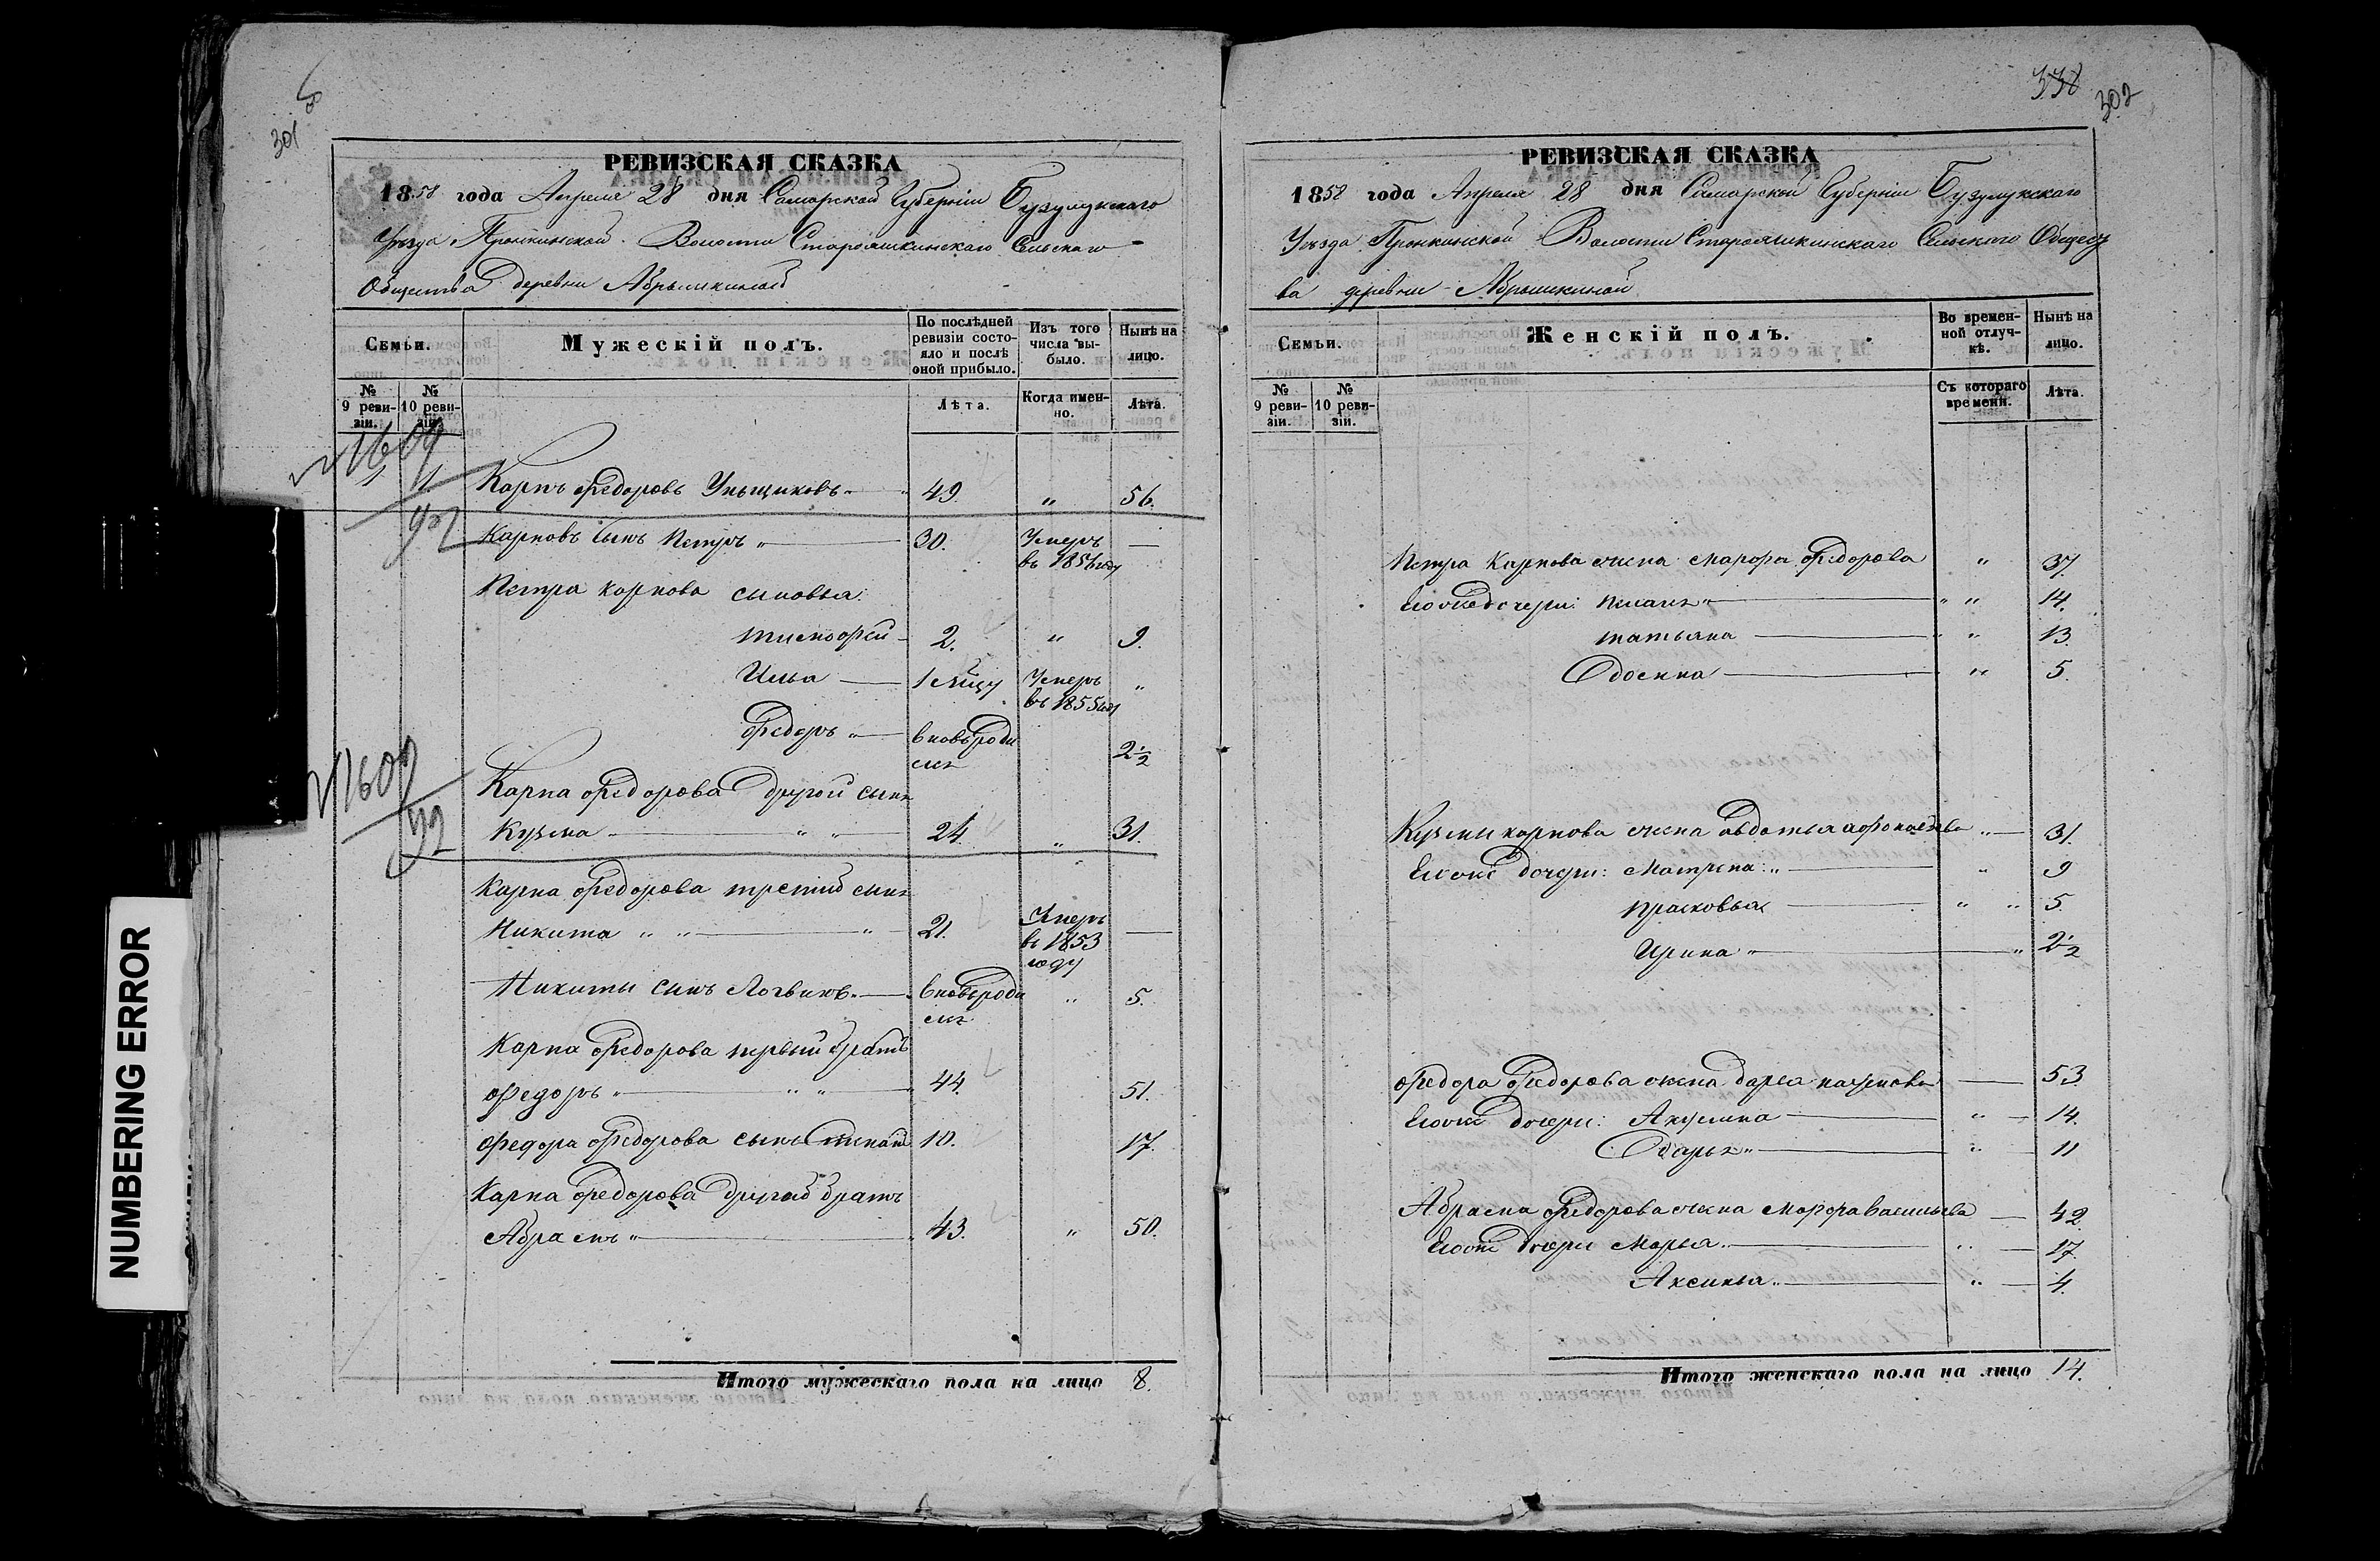 301
РЕВИЗСКАЯ СКАЗКА
1858 года Апреля 28 дня Самарской Губерніи Бузулукскаго
Уѣзда Пронкинской Волости Старояшкинскаго Сельскаго
Общества деревни Абрышкиной
Семьи.
Мужескій полъ.
По послѣдней ревизіи состояло и послѣ оной прибыло.
Изъ того числа выбыло.
Нынѣ на лицо.
№ 9 ревизіи.
№ 10 ревизіи.
Лѣта.
Когда именно.
Лѣта.
1609
1 1 Карпъ Федоровъ 49. „ 56.
92
Карповъ сынъ Петръ „ 30. Умеръ —
въ 1856 году
Петра Карпова сыновья:
Тимофей 2. „ 9.
Илья 1 мѣцу Умеръ „
въ 1855 году
Федоръ „ вновь роди
лся 2½
1609
92
Карпа Федорова другой сынъ
Кузма „ „ 24. „ 31.
Карпа Федорова третий сынъ
Никита „ „ „ 21. Умеръ —
въ 1853
году
Никиты сынъ Логвинъ вновь роди „ 5.
лся
Карпа Федорова первый братъ
Федоръ „ „ „ 44. 51.
Федора Федорова сынъ 10. 17.
Карпа Федорова другой братъ
Абрамъ „ 43. „ 50.
Итого мужескаго пола на лицо 8.
338
302
РЕВИЗСКАЯ СКАЗКА
1858 года Апреля 28 дня Самарской Губерніи Бузулукскаго
Уѣзда Пронкинской Волости Старояшкинскаго Сельского Общест
ва деревни Абрышкиной
Семьи.
Женскій полъ.
Во временной отлучкѣ.
Нынѣ на лицо.
№ 9 ревизіи.
№ 10 ревизіи.
Съ котораго времени.
Лѣта.
Петра Карпова жена Марфа Федорова „ 37.
Его же дочери: „ „ 14.
Татьяна „ „ 13.
„ 5.
Кузмы Карпова жена Авдотья „ 31.
Его же дочери: Матрена „ „ 9
Прасковья „ „ 5.
Ирина „ „ 2½
Федора Федорова жена Дарья 53
Его же дочери: Акулина „ 14.
Одарья „ „ 11
Абрама Федорова жена Марфа Васильева 42
Его же дочери Марья „ 17.
Аксинья „ 4.
Итого женскаго пола на лицо 14.
NUMBERING ERROR